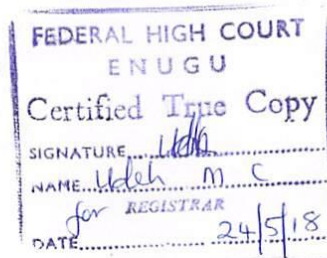 FEDERAL HIGH COURT
ENUGU
Certified True Copy
SIGNATURE
NAME Udeh M C
for REGISTRAR
DATE 24/5/18